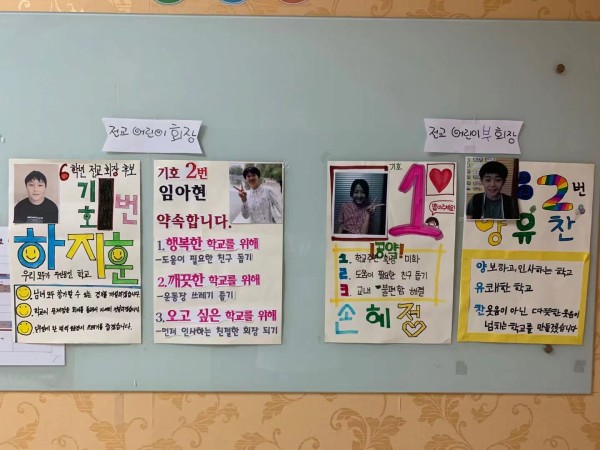 전교 어린이 회장
전교 어린이 부회장
6학년 전교 회장 후보
기
호
번
하지훈
우리 모두가 주인공인 학교
기호 2번
임아현
약속합니다.
1. 행복한 학교를 위해
-도움이 필요한 친구 돕기
2. 깨끗한 학교를 위해
-운동장 쓰레기 줍기
3. 오고 싶은 학교를 위해
-먼저 인사하는 친절한 회장 되기
기호
1
공약!
1. 학교주변 환경 미화
2. 도움이 필요한 친구 돕기
3. 교내 불편함 해결
손혜정
2번
양유찬
양보하고, 인사하는 학교
유쾌한 학교
찬웃음이 아닌 따뜻한 웃음이
넘치는 학교를 만들겠습니다